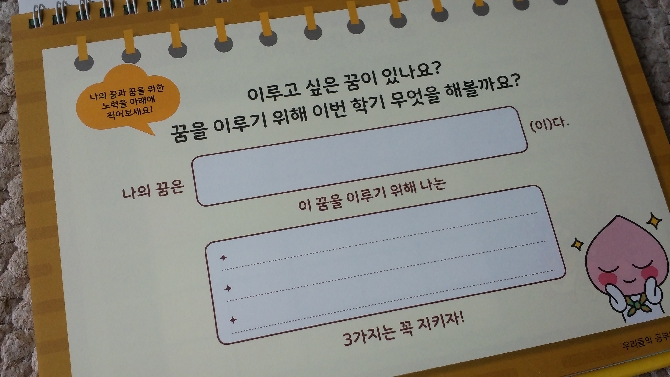 나의 꿈과 꿈을 위한
노력을 아래에
적어보세요!
이루고 싶은 꿈이 있나요?
꿈을 이루기 위해 이번 학기 무엇을 해볼까요?
나의 꿈은
(이)다.
이 꿈을 이루기 위해 나는
3가지는 꼭 지키자!
우리들의